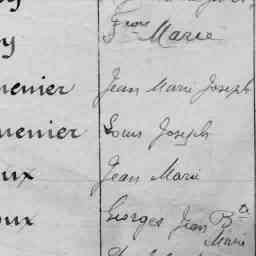 y
Fçois Marie
y
menier Jean Marie Joseph
menier Louis Joseph
oux Jean Marie
oux Georges Jean Bte
Marie